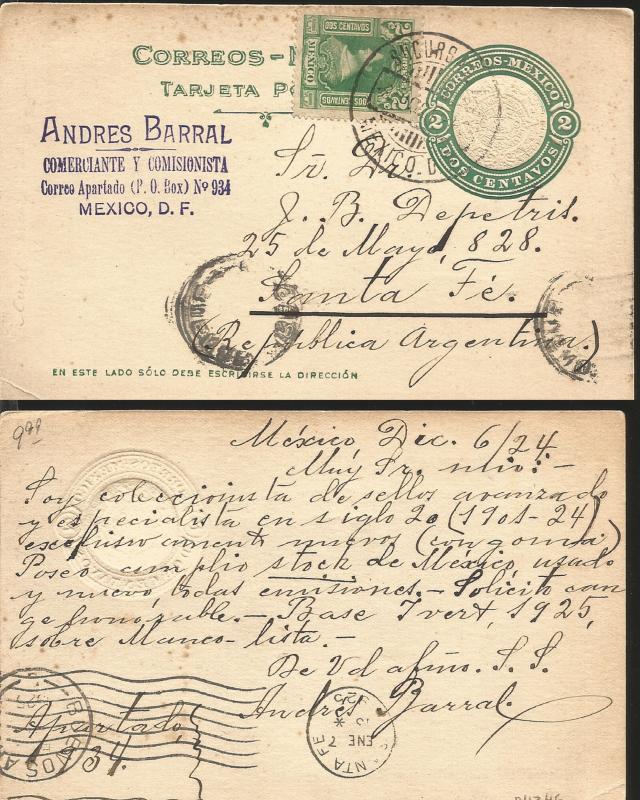 CORREOS-M
TARJETA PO
DOS CENTAVOS
MEXICO
2 DOS CENTAVOS 2
SUCURS
MEXICO. D.
CORREOS-MEXICO
2 2
DOS CENTAVOS
ANDRES BARRAL
COMERCIANTE Y COMISIONISTA
Correo Apartado (P. O. Box) Nº 934
MEXICO, D. F.
Sr. Dr.
J. B. Depetris.
25 de Mayo, 828.
Santa Fé.
(Republica Argentina.)
EN ESTE LADO SÓLO DEBE ESCRIBIRSE LA DIRECCIÓN
México Dic. 6/24
Muy Sr. mio:-
Soy coleccionista de sellos avanzado
y especialista en siglo 20 (1901-24)
exclusivamente nuevos (con goma)
Poseo amplio stock de México, usado
y nuevo, todas emisiones.- Solicito can
ge honorable.- Base Yvert, 1925,
sobre Manco-lista.-
De Vd afmo. S. S.
Andrés Barral.
Apartado,
934.
BUENOS AI
SANTA FE
7 ENE